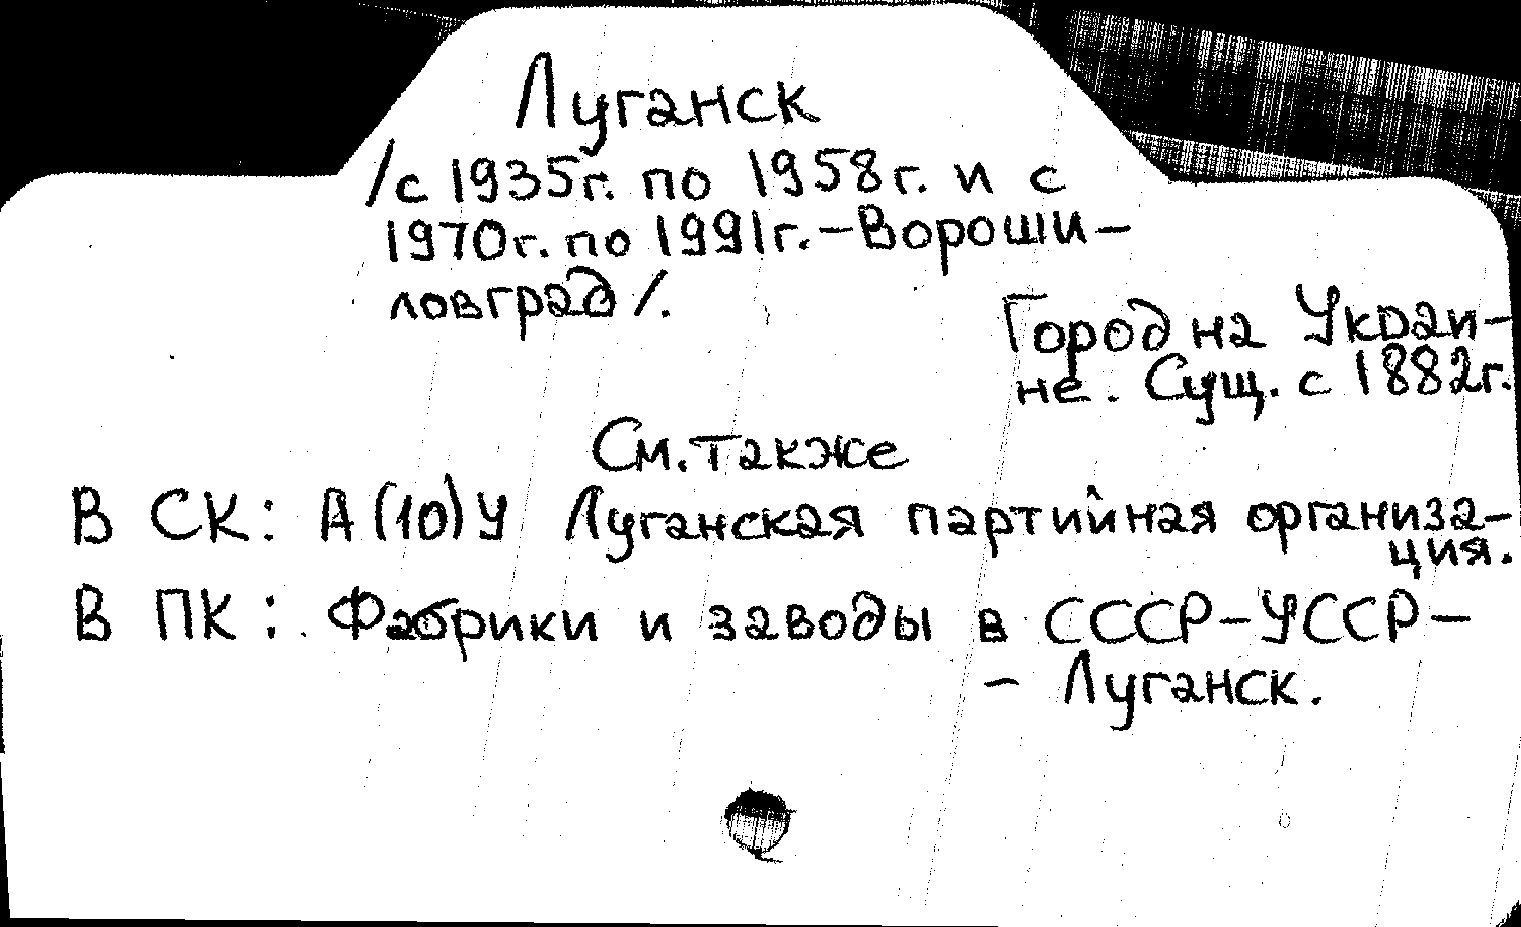 Луганск
/с 1935г. по 1958г. и с
1970г. по 1991г.-Вороши-
ловград/.
Город на Украи-
не. Сущ. с 1882г.
См. также
В СК: А(10)У Луганская партийная организа-
ция.
В ПК: Фабрики и заводы в СССР-УССР-
- Луганск.